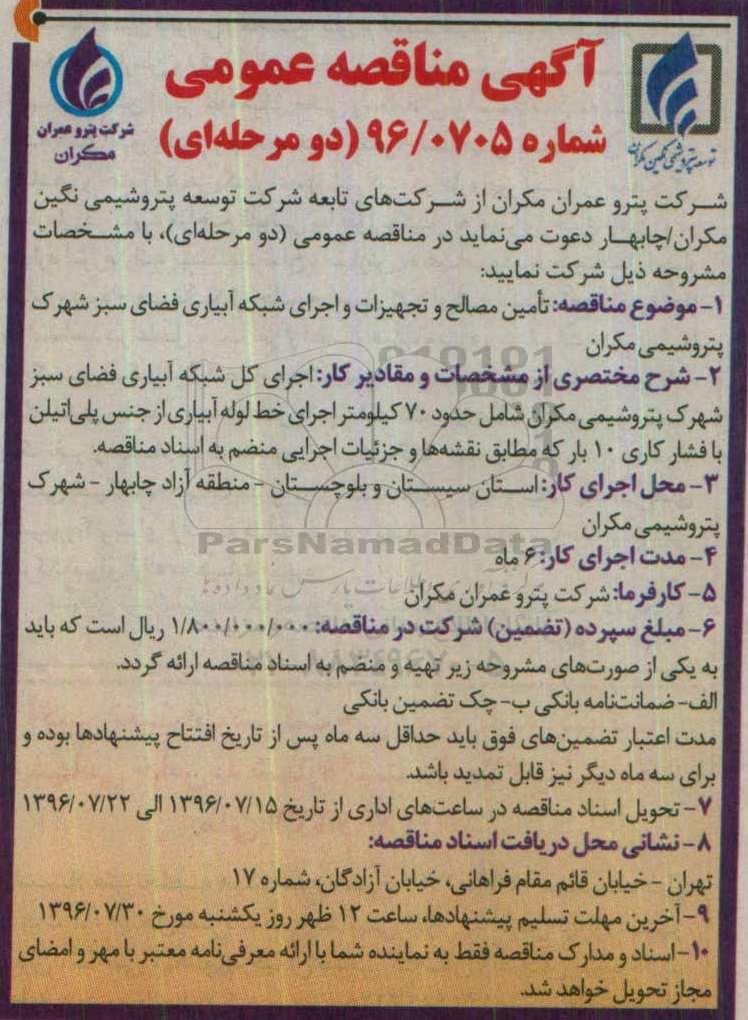 آگهی مناقصه عمومی
شماره ۹۶/۰۷۰۵ (دو مرحله‌ای)
شرکت پترو عمران
مکران
توسعه پتروشیمی نگین مکران
شرکت پترو عمران مکران از شرکت‌های تابعه شرکت توسعه پتروشیمی نگین
مکران/چابهار دعوت می‌نماید در مناقصه عمومی (دو مرحله‌ای)، با مشخصات
مشروحه ذیل شرکت نمایید:
۱- موضوع مناقصه: تأمین مصالح و تجهیزات و اجرای شبکه آبیاری فضای سبز شهرک
پتروشیمی مکران
۲- شرح مختصری از مشخصات و مقادیر کار: اجرای کل شبکه آبیاری فضای سبز
شهرک پتروشیمی مکران شامل حدود ۷۰ کیلومتر اجرای خط لوله آبیاری از جنس پلی‌اتیلن
با فشار کاری ۱۰ بار که مطابق نقشه‌ها و جزئیات اجرایی منضم به اسناد مناقصه.
۳- محل اجرای کار: استان سیستان و بلوچستان - منطقه آزاد چابهار - شهرک
پتروشیمی مکران
ParsNamadData
۴- مدت اجرای کار: ۶ ماه
۵- کارفرما: شرکت پترو عمران مکران
۶- مبلغ سپرده (تضمین) شرکت در مناقصه: ۱/۸۰۰/۰۰۰/۰۰۰ ریال است که باید
به یکی از صورت‌های مشروحه زیر تهیه و منضم به اسناد مناقصه ارائه گردد.
الف- ضمانتنامه بانکی ب- چک تضمین بانکی
مدت اعتبار تضمین‌های فوق باید حداقل سه ماه پس از تاریخ افتتاح پیشنهادها بوده و
برای سه ماه دیگر نیز قابل تمدید باشد.
۷- تحویل اسناد مناقصه در ساعت‌های اداری از تاریخ ۱۳۹۶/۰۷/۱۵ الی ۱۳۹۶/۰۷/۲۲
۸- نشانی محل دریافت اسناد مناقصه:
تهران - خیابان قائم مقام فراهانی، خیابان آزادگان، شماره ۱۷
۹- آخرین مهلت تسلیم پیشنهادها، ساعت ۱۲ ظهر روز یکشنبه مورخ ۱۳۹۶/۰۷/۳۰
۱۰- اسناد و مدارک مناقصه فقط به نماینده شما با ارائه معرفی‌نامه معتبر با مهر و امضای
مجاز تحویل خواهد شد.